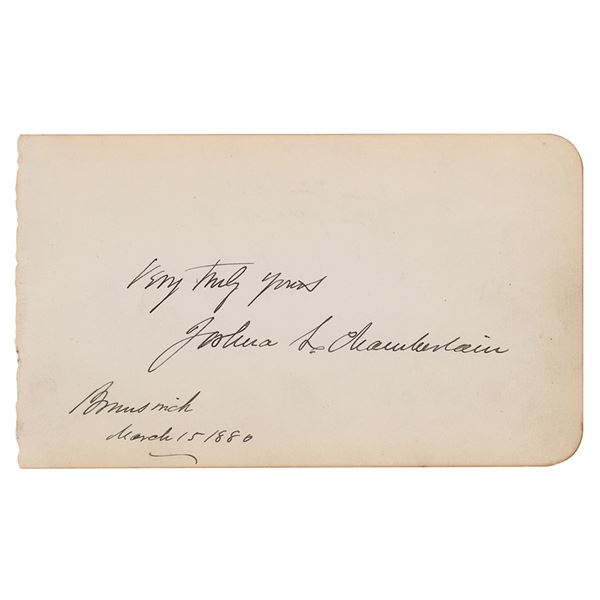 Very truly yours
Joshua L. Chamberlain
Brunswick
March 15 1880